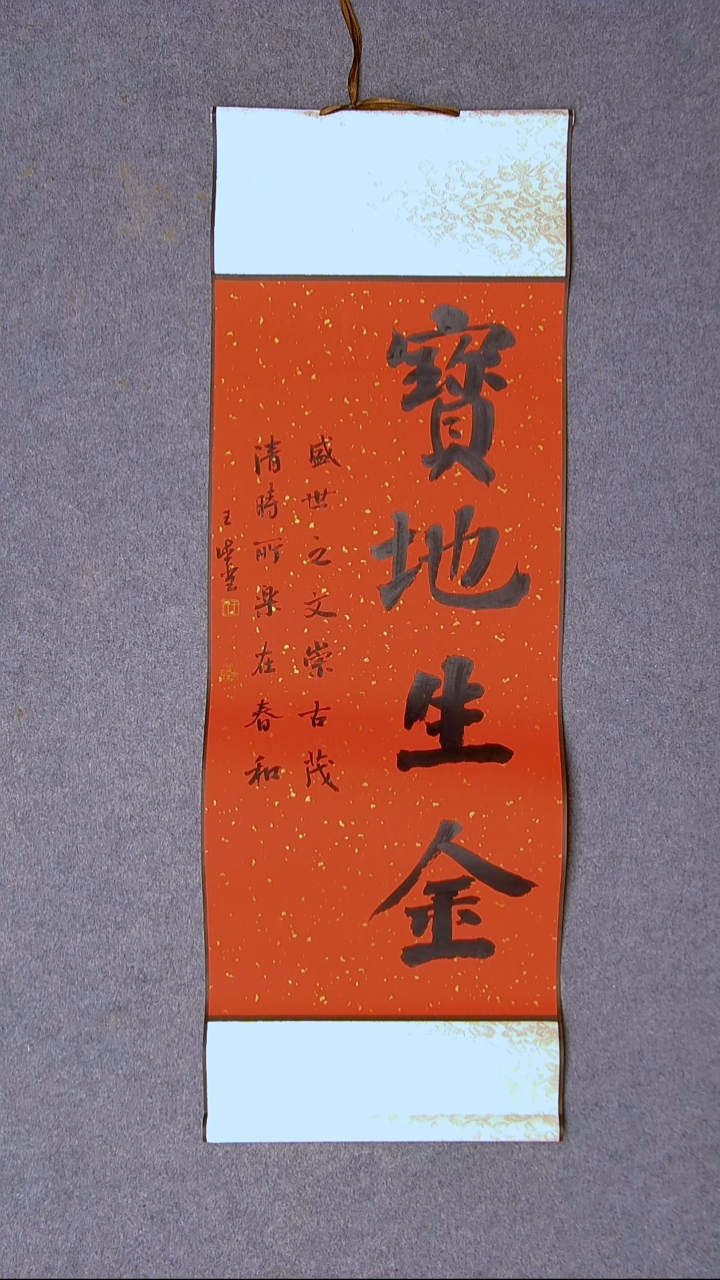 寶地生金
盛世之文崇古茂
清時所樂在春和
王